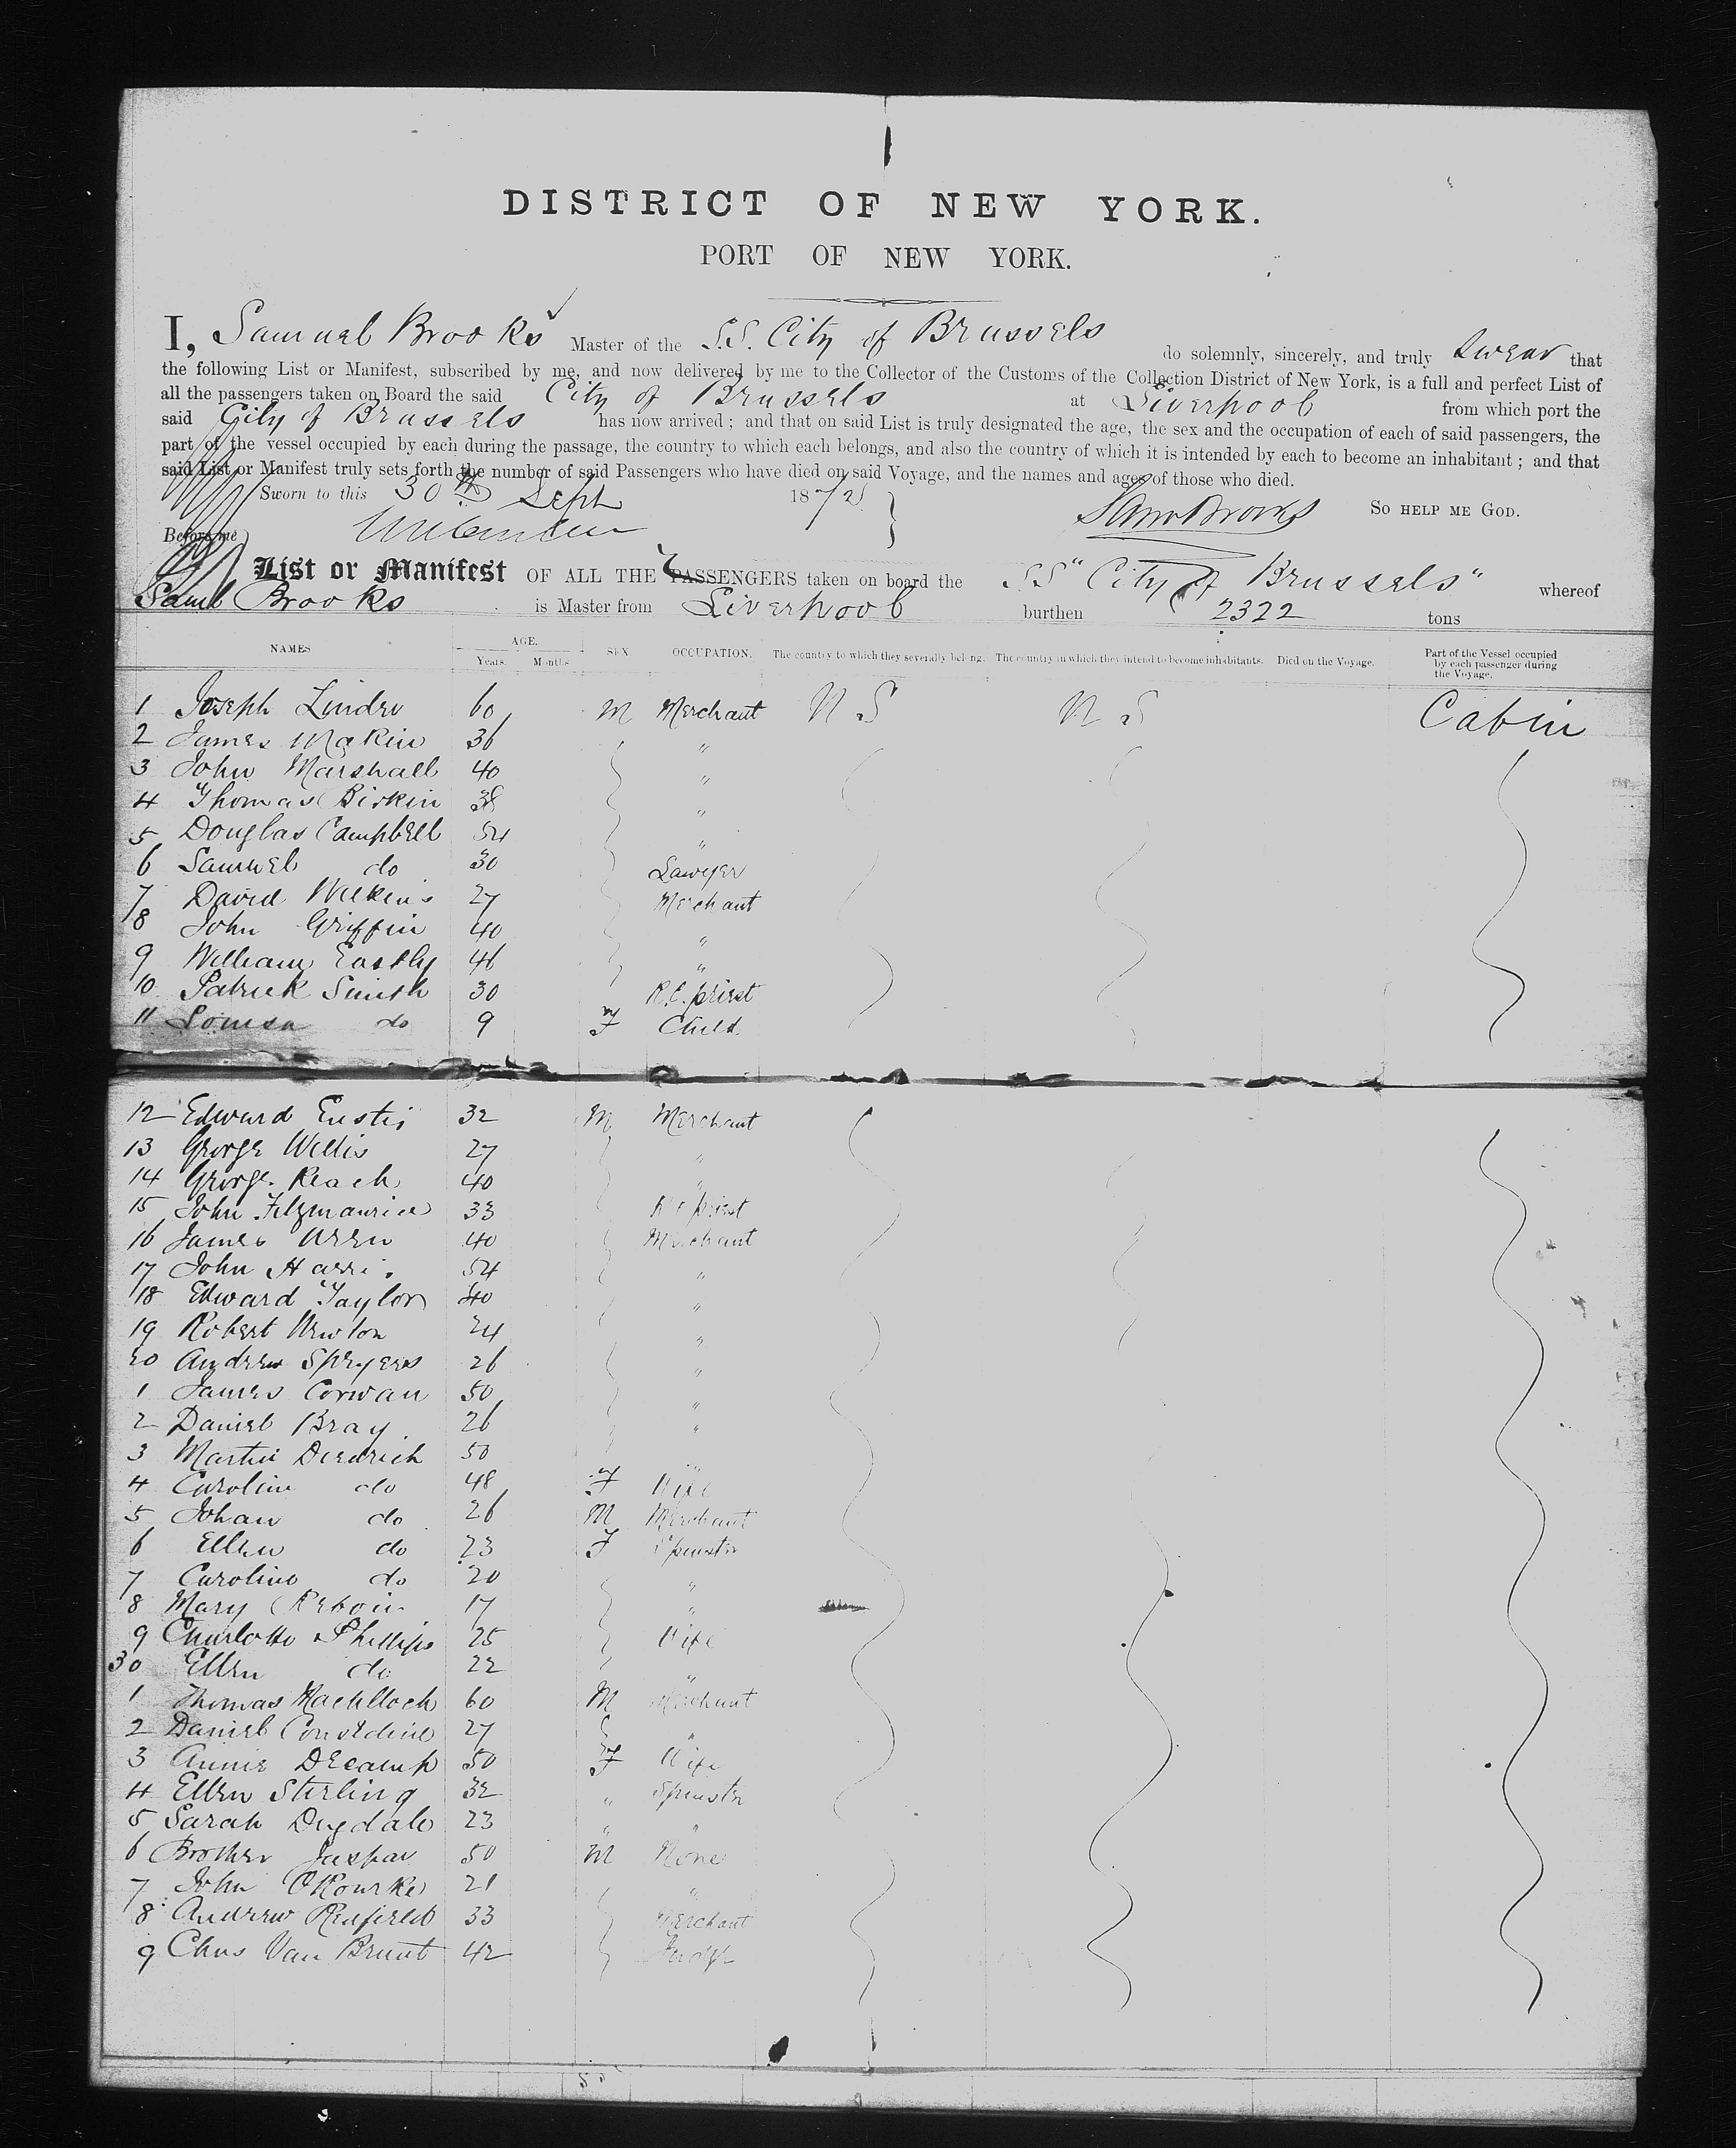 DISTRICT OF NEW YORK.
PORT OF NEW YORK.
I, Samuel Brooks Master of the S.S. City of Brussels do solemnly, sincerely, and truly Swear that
the following List or Manifest, subscribed by me, and now delivered by me to the Collector of the Customs of the Collection District of New York, is a full and perfect List of
all the passengers taken on Board the said City of Brussels at Liverpool from which port the
said City of Brussels has now arrived; and that on said List is truly designated the age, the sex and the occupation of each of said passengers, the
part of the vessel occupied by each during the passage, the country to which each belongs, and also the country of which it is intended by each to become an inhabitant; and that
said List or Manifest truly sets forth the number of said Passengers who have died on said Voyage, and the names and ages of those who died.
Sworn to this 30th Sept 187 Saml Brooks SO HELP ME GOD.
Before me
List or Manifest OF ALL THE PASSENGERS taken on board the S.S "City of Brussels" whereof
Saml Brooks is Master from Liverpool burthen 2322 tons
NAMES AGE. Years. Months SEX OCCUPATION. The country to which they severally belong. The country in which they intend to become inhabitants. Died on the Voyage. Part of the Vessel occupied by each passenger during the Voyage.
1 Joseph 60 M Merchant U S U S Cabin
2 James Makin 36 "
3 John Marshall 40 "
4 Thomas Birkin 38 "
5 Douglas Campbell 54 "
6 Samuel do 30 Lawyer
7 David Wilkins 27 Merchant
8 John Griffin 40 "
9 William 46 "
10 Patrick Smith 30 R.C. priest
11 Louisa do 9 F Child
12 Edward Eustis 32 M Merchant
13 George Willis 27 "
14 George Reach 40 "
15 John Fitzmaurice 33 R C priest
16 James Wren 40 Merchant
17 John Harris 54 "
18 Edward Taylor 40 "
19 Robert Newton 24 "
20 Andrew Speyers 26 "
1 James Corwan 50 "
2 Daniel Bray 26 "
3 Martin Diedrich 50 "
4 Caroline do 48 F Wife
5 Johan do 26 M Merchant
6 Ellen do 23 F Spinster
7 Caroline do 20 "
8 Mary 17 "
9 Charlotte Phillips 25 Wife
30 Ellen do 22 "
1 Thomas 60 M Merchant
2 Daniel Considine 27 "
3 Annie Decamp 50 F Wife
4 Ellen Sterling 32 " Spinster
5 Sarah Dugdale 23 " "
6 Brother Jaspar 50 M None
7 John O'Rourke 21 "
8 Andrew Redfield 33 Merchant
9 Chas Van Brunt 42 Judge